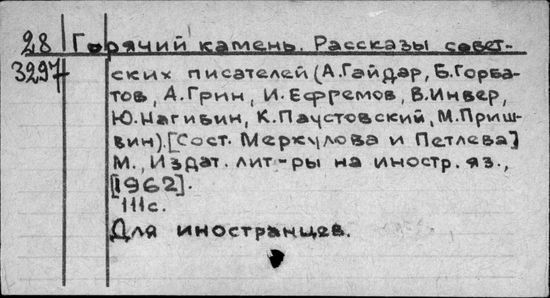 28 Горячий камень. Рассказы совет-
3297 ских писателей (А.Гайдар, Б.Горба-
тов, А.Грин, И.Ефремов, В.Инвер,
Ю.Нагибин, К.Паустовский, М.Приш-
вин). [Сост. Меркулова и Петлева]
М., Издат. лит-ры на иностр. яз.,
[1962].
111с.
Для иностранцев.